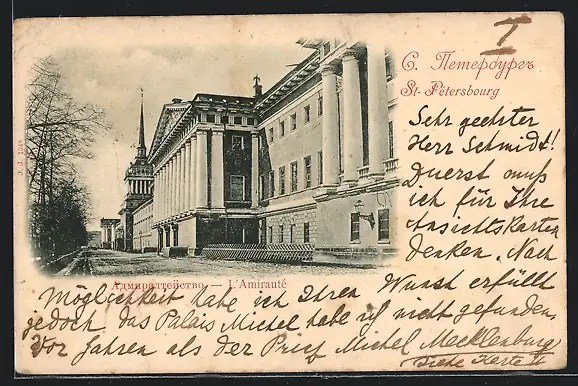 I
С. Петербургъ
St-Pétersbourg
J. J. 1948
Sehr geehrter
Herr Schmidt!
Zuerst muß
ich für Ihre
Ansichtskarten
denken. Nach
Адмиралтейство — L'Amirauté
Möglichkeit habe ich Ihren Wunsch erfüllt
jedoch das Palais Michel habe ich nicht gefunden,
Vor Jahren als der Prinz Michel Mecklenburg
Siehe Karte II